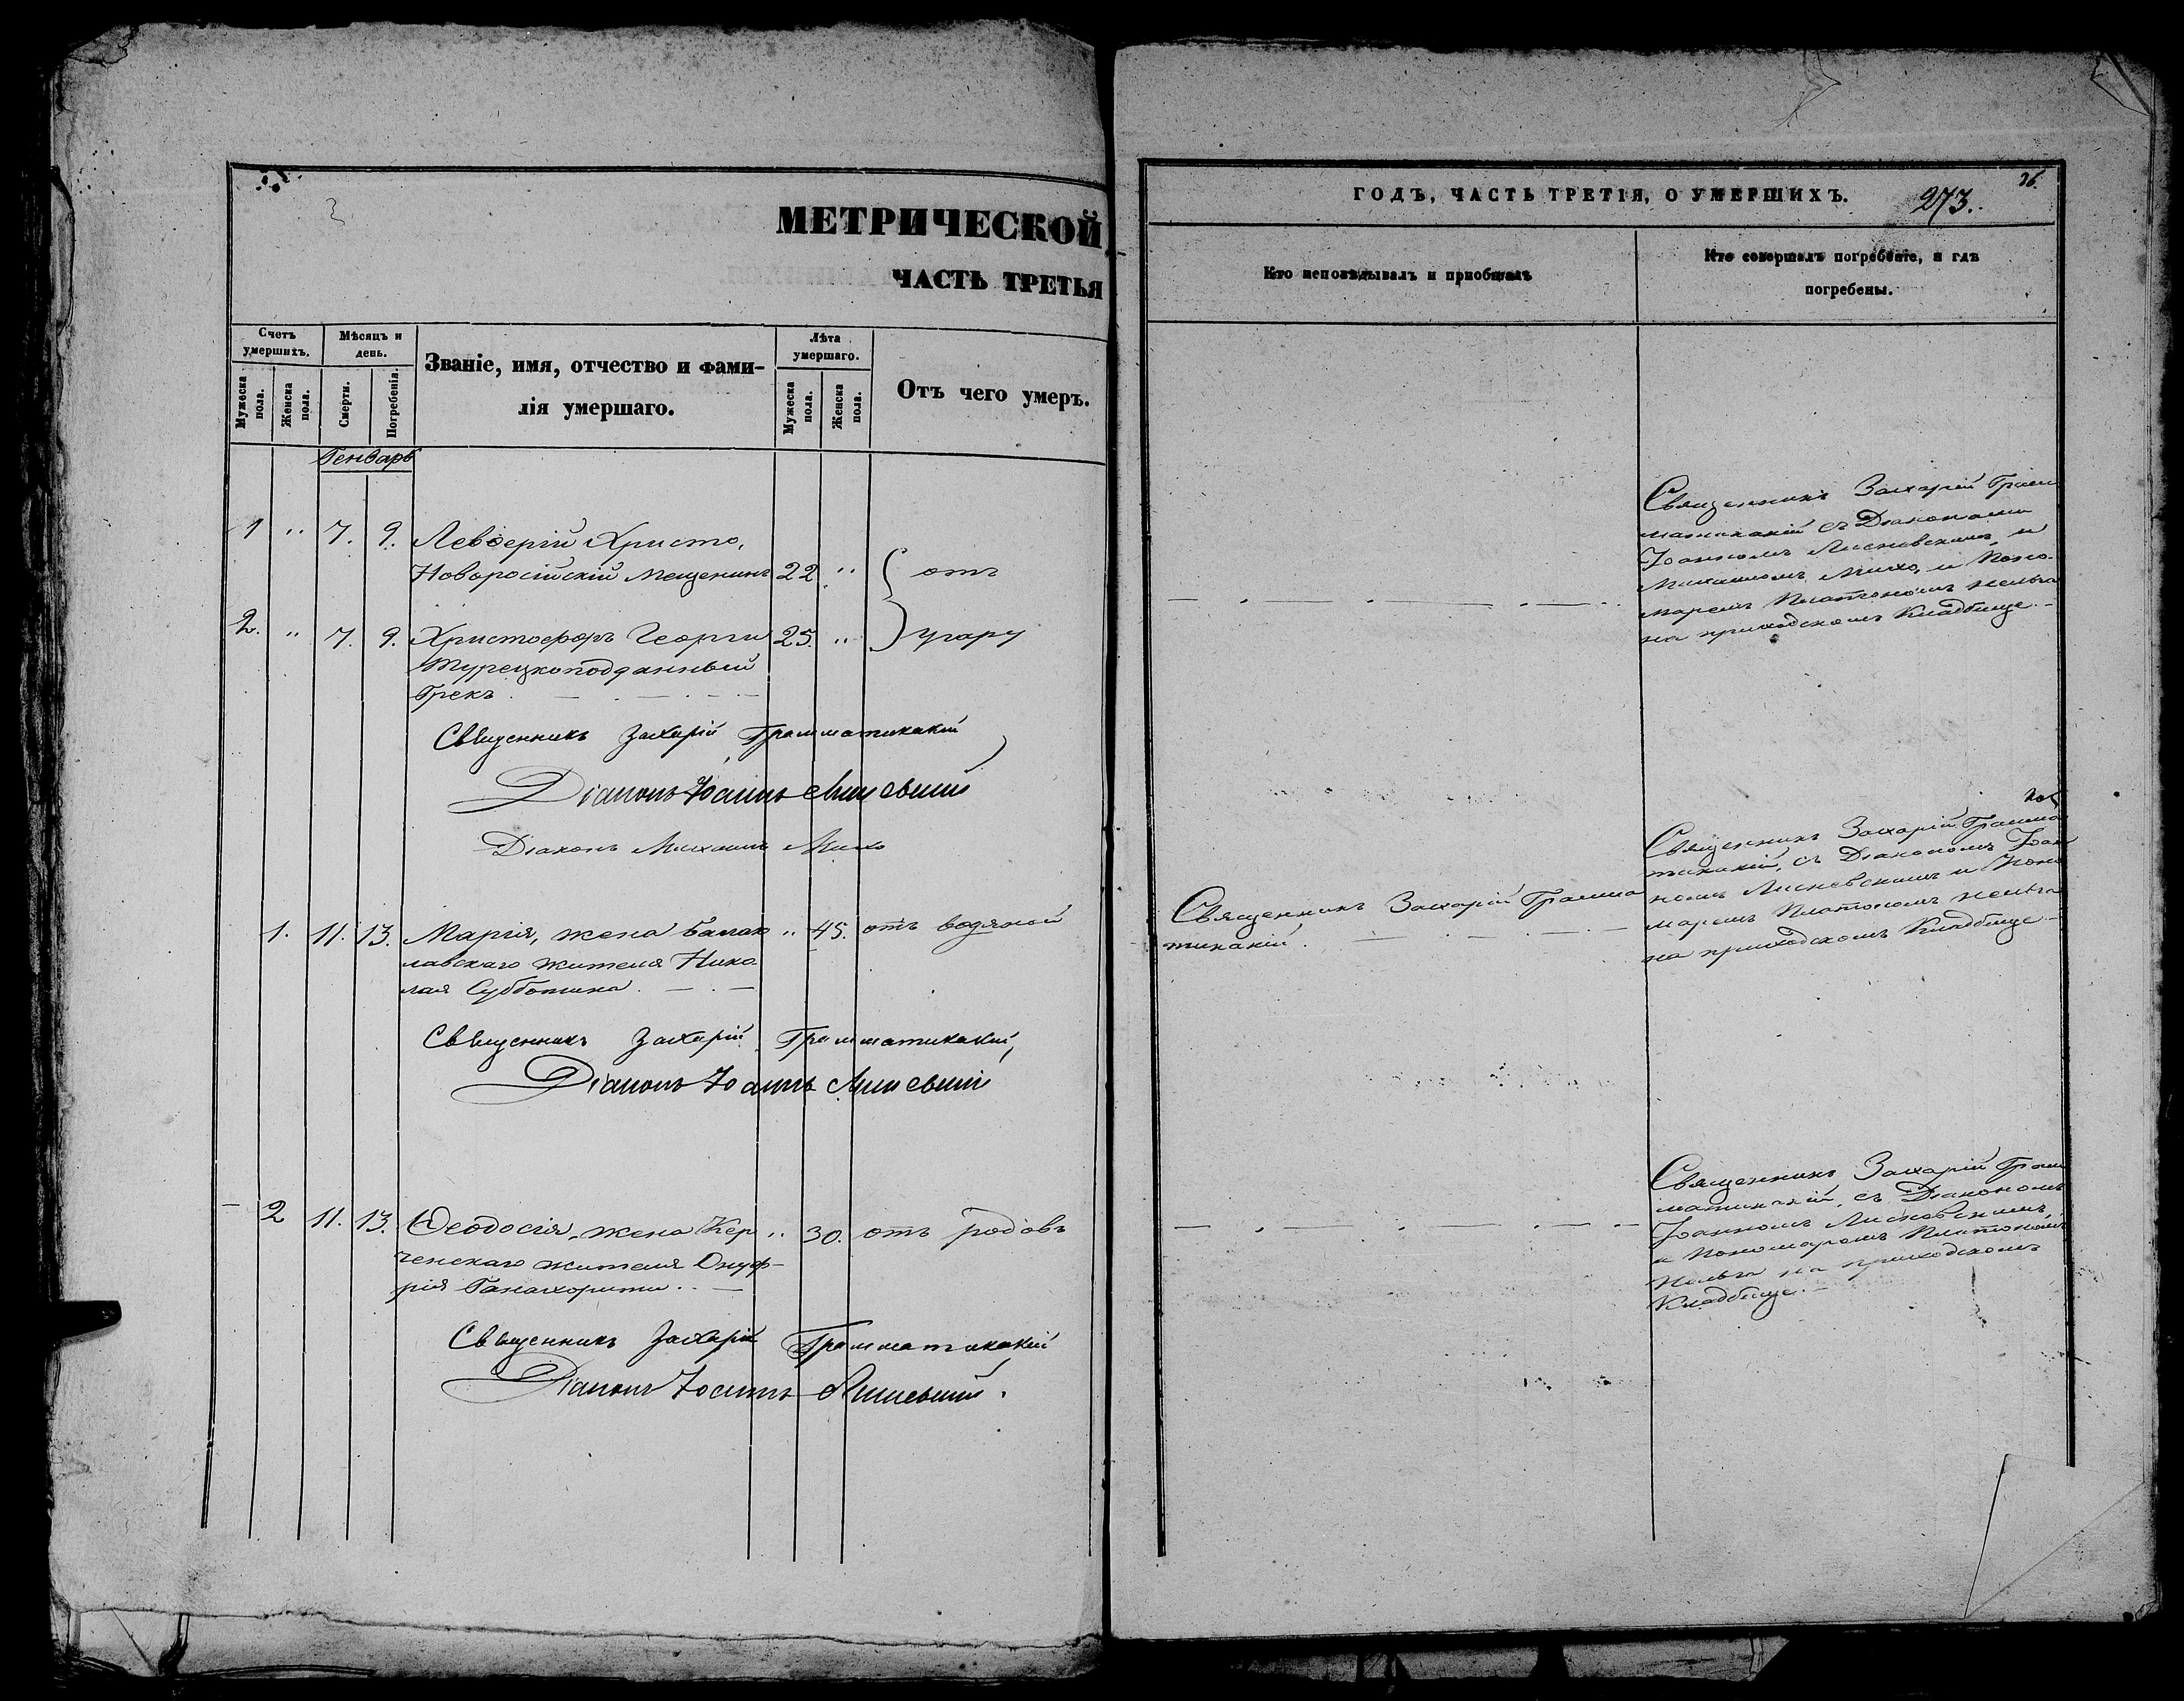 МЕТРИЧЕСКОЙ
ЧАСТЬ ТРЕТЬЯ
Счетъ умершихъ.
Мужеска пола.
Женска пола.
Мѣсяцъ и день.
Смерти.
Погребенія.
Званіе, имя, отчество и фами-
лія умершаго.
Лѣта умершаго.
Мужеска пола.
Женска пола.
Отъ чего умеръ.
Генварь
1 " 7. 9. Левѳерій Христо,
Новоросійскій мещенинъ 22 " отъ
2. " 7. 9. Христофоръ Георги 25. " угару
Турецкоподданный
Грекъ.
Священникъ Захарій Грамматикакій
Діаконъ Іоаннъ Лисневскій
Діаконъ Михаилъ Михо
1. 11. 13. Марія, жена Балак " 45. отъ водяной
лавскаго жителя Нико
лая Субботина.
Священникъ Захарій Грамматикакій,
Діаконъ Іоаннъ Лисневскій
2 11. 13. Ѳеодосія, жена Кер " 30. отъ родовъ
ченскаго жителя Онуф-
рія Панахорити.
Священникъ Захарій Грамматикакій
Діаконъ Іоаннъ Лисневскій.
ГОДЪ, ЧАСТЬ ТРЕТІЯ, О УМЕРШИХЪ. 273.
36.
Кто исповѣдывалъ и приобщалъ
Кто совершалъ погребеніе, и гдѣ
погребены.
Священникъ Захарій Грам
матикакій съ Діаконами
Іоанномъ Лисневскимъ и
Михаиломъ Михо, и Поно-
маремъ Платономъ
на приходскомъ Кладбище.
Священникъ Захарій Грамма
тикакій.
Священникъ Захарій Грамма
тикакій, съ Діакономъ Іоан
номъ Лисневскимъ и Поно
маремъ Платономъ
на приходскомъ Кладбище
Священникъ Захарій Грам
матикакій, съ Діакономъ
Іоанномъ Лисневскимъ,
и Пономаремъ Платономъ
на приходскомъ
Кладбище.